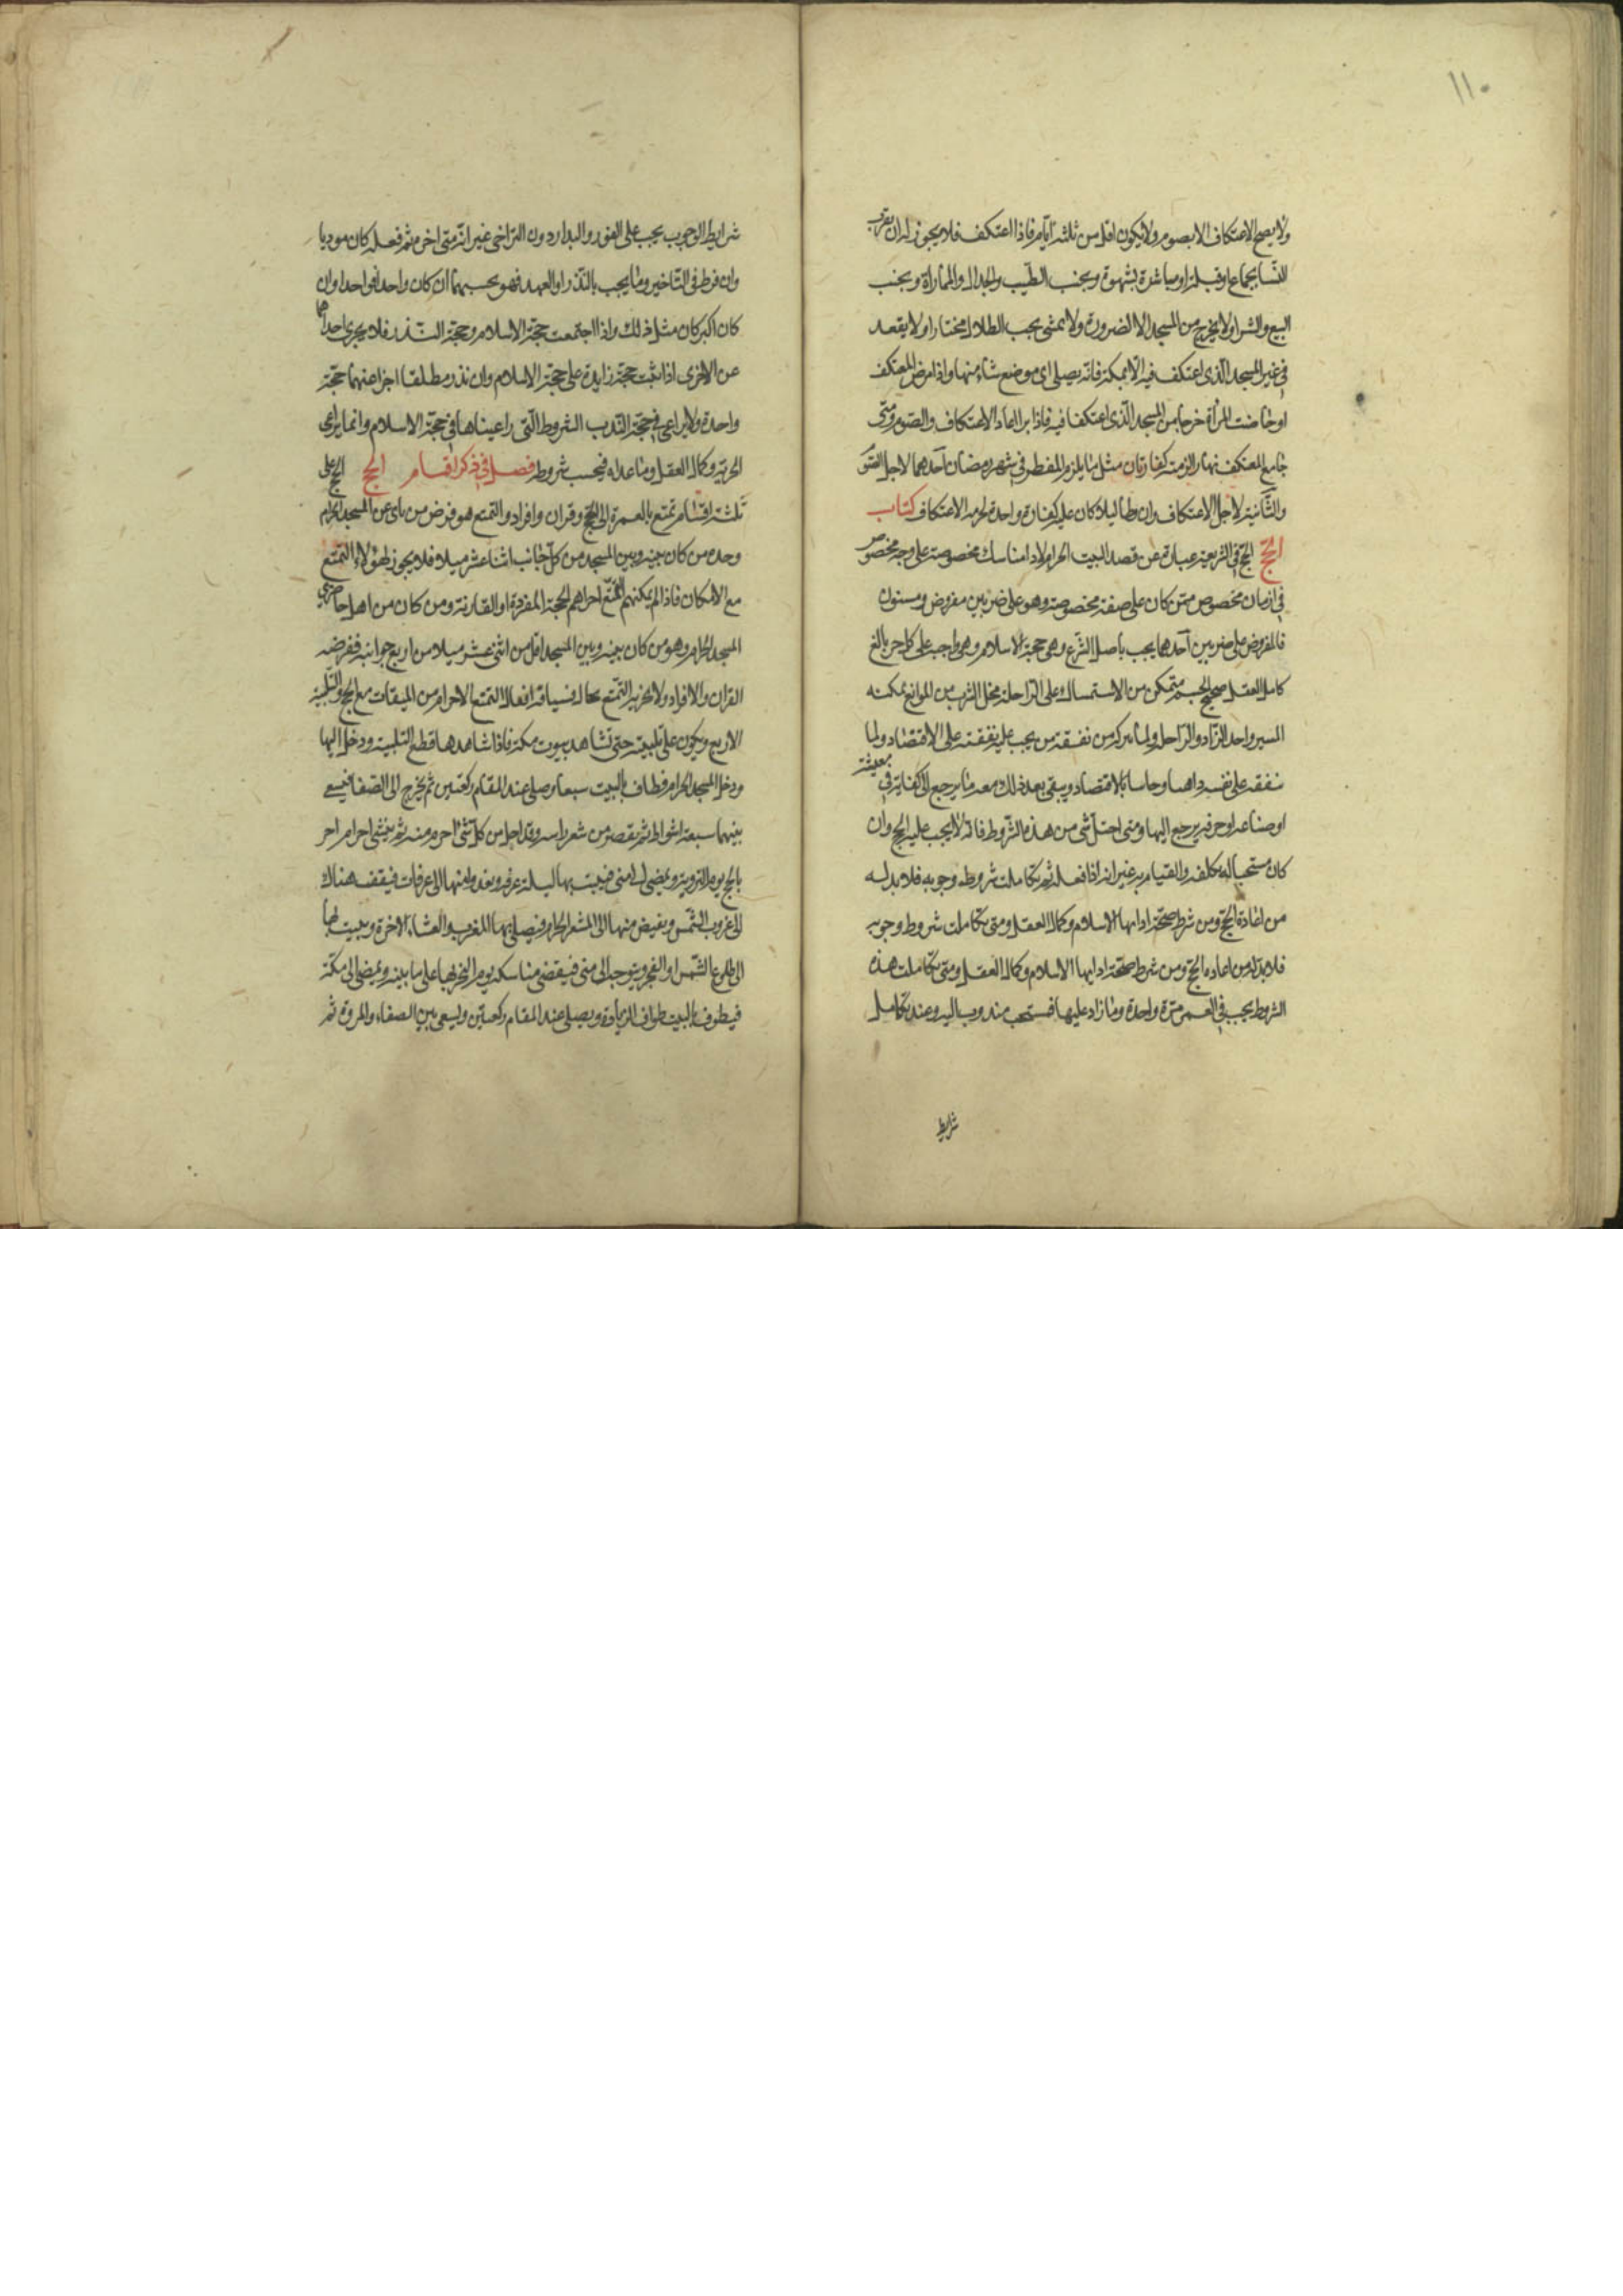 ١١٠
ولا يصح الاعتكاف الا بصوم ولا يكون اقل من ثلثة ايام فاذا اعتكف فلا يجوز له ان يقرب
النسا بجماع او قبلة او مباشرة بشهوة ويجنب الطيب والجدال والمماراة ويجنب
البيع والشرا ولا يخرج من المسجد الا الضرورة ولا يمشى تحت الظلال مختارا ولا يقعد
في غير المسجد الذي اعتكف فيه الا بمكة فانه يصلى اى موضع شاء منها واذا مرض المعتكف
او حاضت المرأة خرجا من المسجد الذي اعتكفا فيه فاذا برا اعاد الاعتكاف والصوم ومتى
جامع المعتكف نهارا لزمته كفارتان مثل ما يلزم المفطر في شهر رمضان احدهما لاجل الصوم
والثانية لاجل الاعتكاف وان وطأ ليلا كان عليه كفارة واحدة لحرمة الاعتكاف كتاب
الحج الحج في الشريعة عبارة عن قصد البيت الحرام لاداء مناسك مخصوصة على وجه مخصوص
في ازمان مخصوص ممن كان على صفة مخصوصة وهو على ضربين مفروض ومسنون
فالمفروض على ضربين احدهما يجب باصل الشرع وهي حجة الاسلام وهي واجب على كل حر بالغ
كامل العقل صحيح الجسم متمكن من الاستمساك على الراحلة مخلى الشرب من الموانع يمكنه
المسير واجد الزاد والراحلة ولما يتركه من نفقة من يجب عليه نفقته على الاقتصاد ولما
ينفقه على نفسه ذاهبا وجاسيا بالاقتصاد ويبقى بعد ذلك معه ما يرجع الى كفاية في معيشته
او صناعة او حرفة يرجع اليها ومتى اختل شى من هذه الشروط فانه لا يجب عليه الحج وان
كان مستحبا له تكلفه والقيام به غير انه اذا فعله ثم تكاملت شروط وجوبه فلا بد له
من اعادة الحج ومن شرط صحة ادائها الاسلام وكمال العقل ومتى تكاملت شروط وجوبه
فلا بد له من اعاده الحج ومن شرط صحة ادايها الاسلام وكمال العقل ومتى تكاملت هذه
الشروط يجب في العمر مرة واحدة وما زاد عليها فمستحب مندوب اليه وعند تكامل
شرايط
شرايط الوجوب يجب على الفور والبدار دون التراخى غير انه متى اخر ثم فعله كان موديا
وان فرط في التاخير وما يجب بالنذر او العهد فهو بحسبهما ان كان واحدا فواحدا وان
كان اكبر كان مثل ذلك واذا اجتمعت حجة الاسلام وحجة النذر فلا يجزى احداهما
عن الاخرى اذا نثبت حجة زايدة على حجة الاسلام وان نذر مطلقا اجزا عنهما حجة
واحدة ولا يراعى في حجة الندب الشروط التي راعيناها في حجة الاسلام وانما يراعى
الحرية وكمال العقل وما عداه فبحسب شروطه فصل في ذكر اقسام الحج الحج على
ثلثة اقسام تمتع بالعمرة الى الحج وقران وافراد والتمتع هو فرض من نأى عن المسجد الحرام
وحده من كان بينه وبين المسجد من كل جانب اثنا عشر ميلا فلا يجوز لهؤلاء التمتع
مع الامكان فاذا لم يمكنهم التمتع اجزاهم الحجة المفردة او القارنة ومن كان من اهل حاضري
المسجد الحرام وهو من كان بينه وبين المسجد اقل من اثنى عشر ميلا من اربع جوانبه ففرضه
القران والافراد ولا يجزيه التمتع بحال فسياقة افعال التمتع الاحرام من الميقات مع الحج والتلبية
الاربع ويكون على تلبيته حتى تشاهد بيوت مكة فاذا شاهدها قطع التلبية ودخل اليها
ودخل المسجد الحرام فطاف بالبيت سبعا وصلى عند المقام ركعتين ثم يخرج الى الصفا فيسعى
بينهما سبعة اشواط ثم يقصر من شعر راسه وقد احل من كل شئ احرم منه ثم ينشئ احرام اخر
بالحج يوم التروية ويمضى الى منى فيبيت بها ليلة عرفة ويغدو منها الى عرفات فيقف هناك
الى غروب الشمس ويفيض منها الى المشعر الحرام فيصلى بها المغرب والعشاء الاخرة ويبيت بها
الى طلوع الشمس او الفجر ويتوجه الى منى فيقضى مناسكه يوم النحر بها على ما بينه ويمضى الى مكة
فيطوف بالبيت طواف الزيادة ويصلى عند المقام ركعتين ويسعى بين الصفاء والمروة ثم